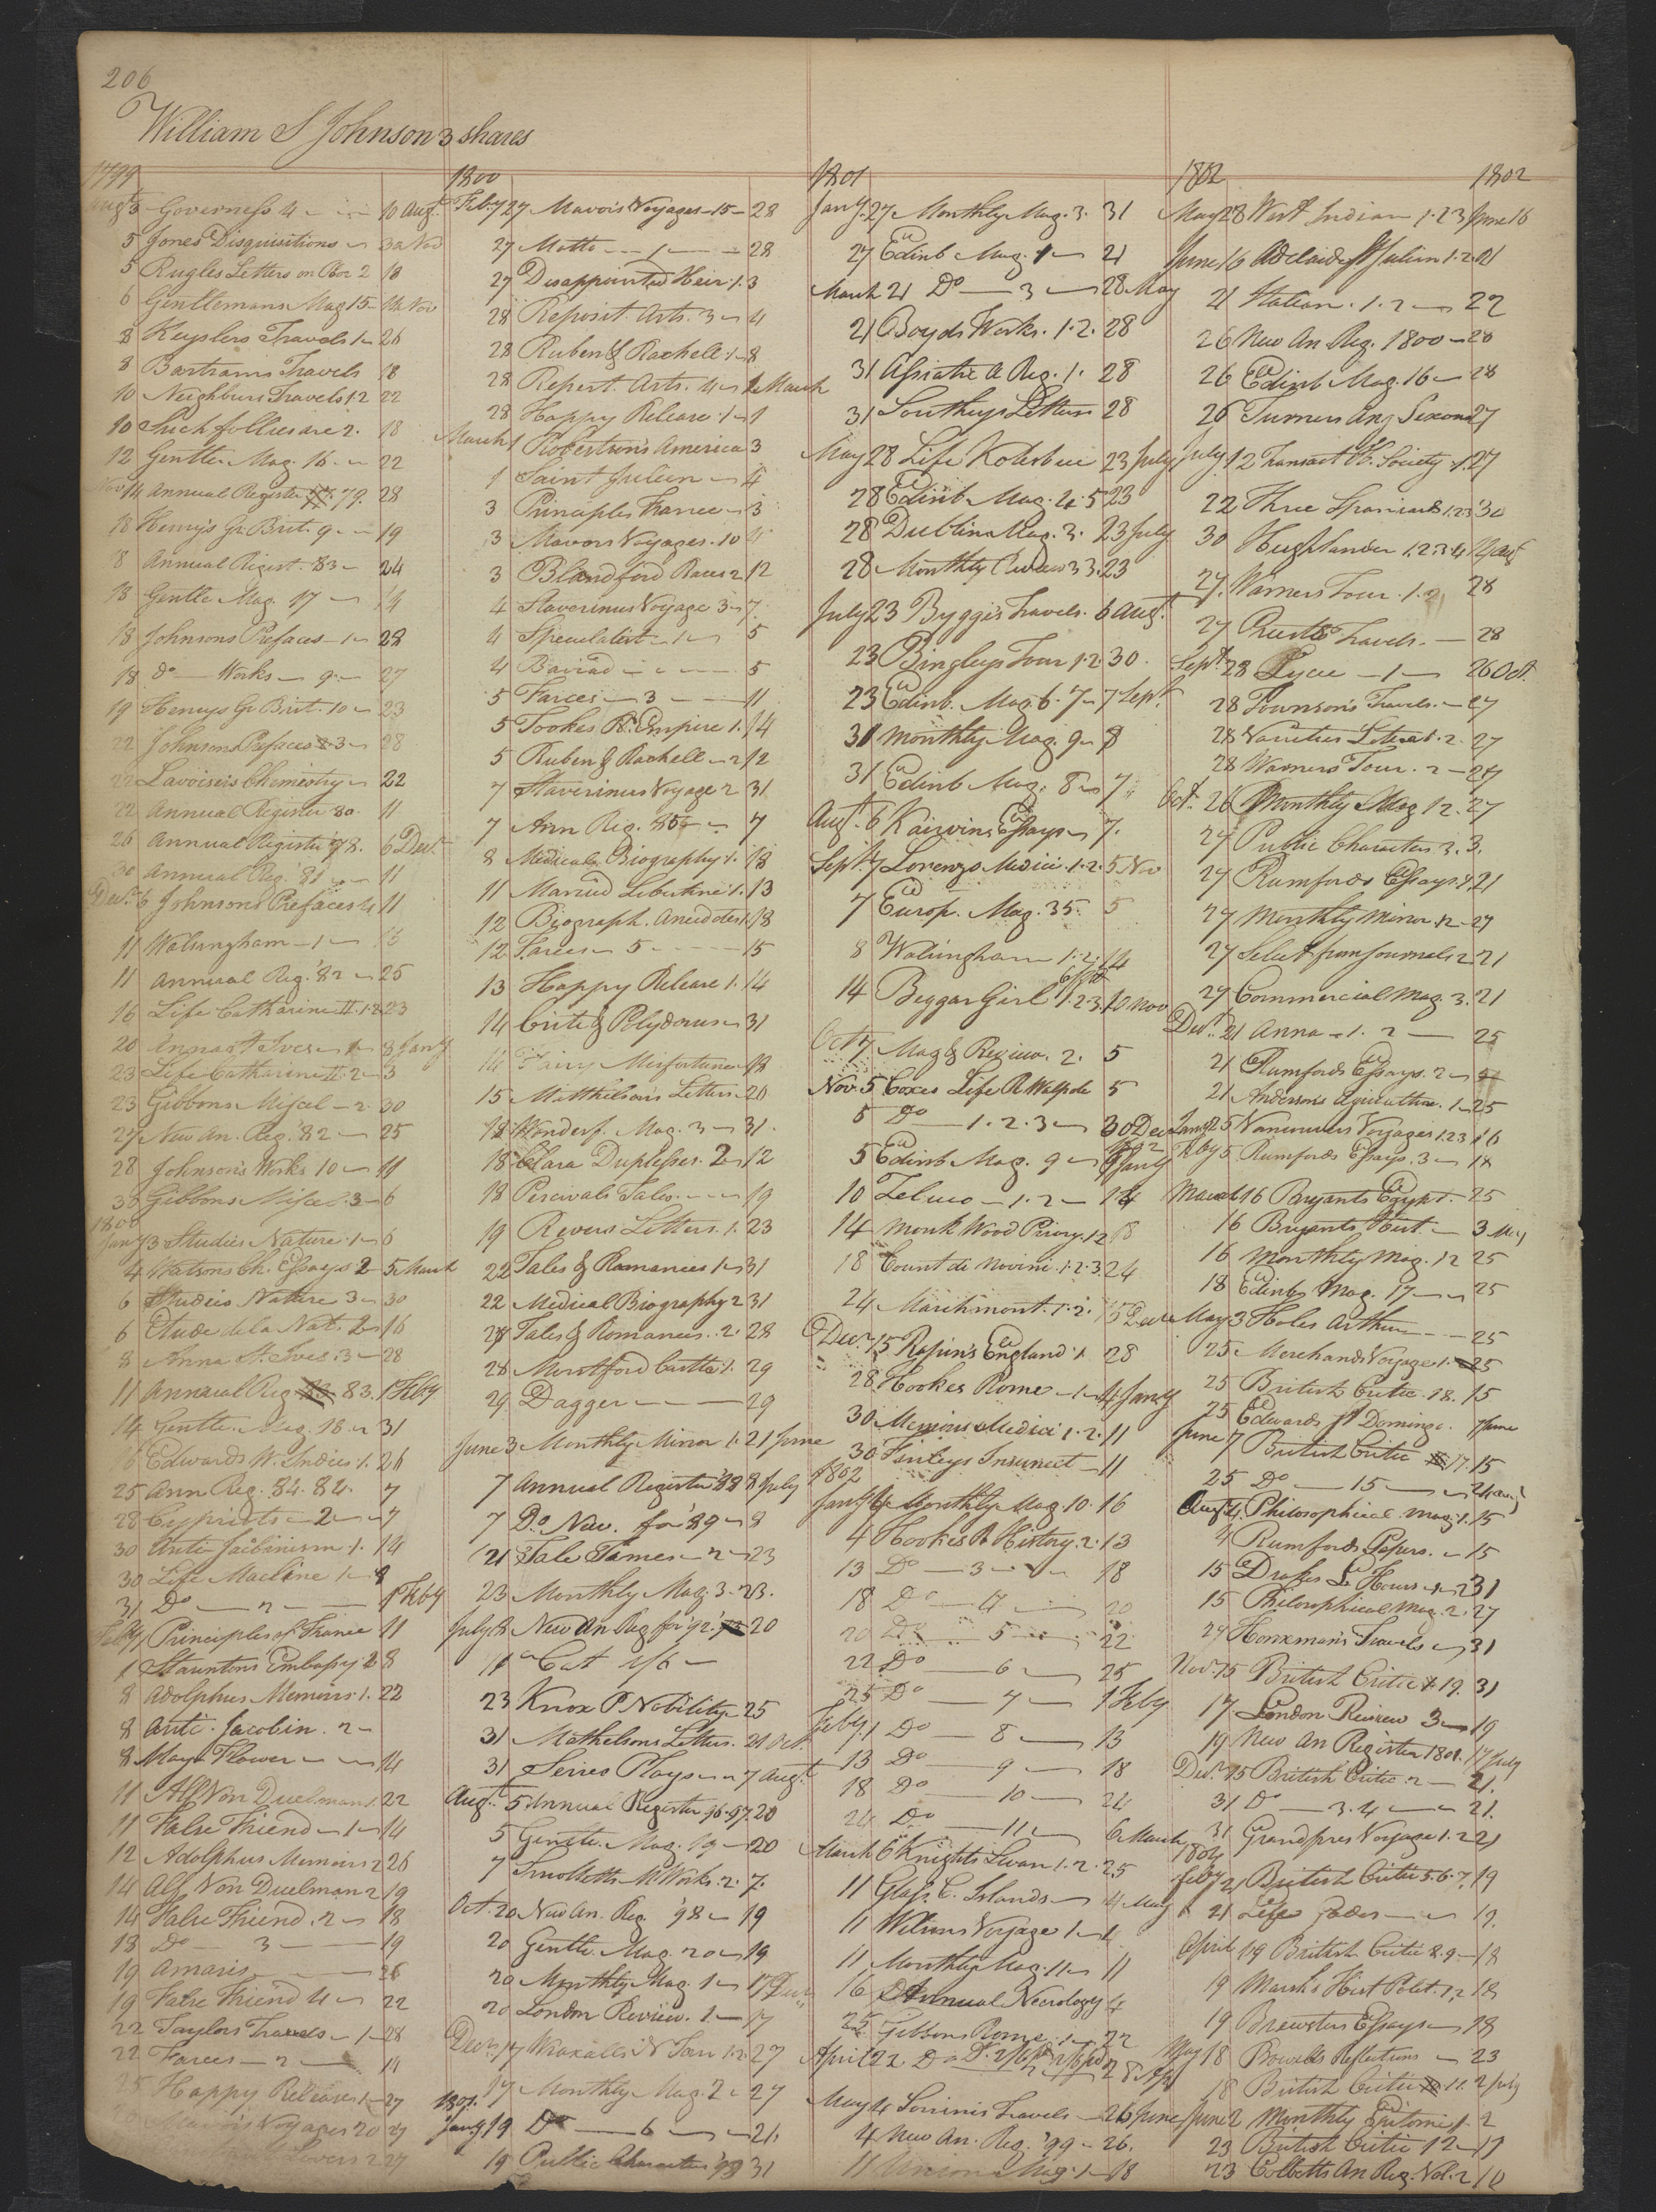 206
William S Johnson 3 shares
1799
Augt 3 Governess 4 10 Augt
5 Jones Disquisitions 30 Nov
5 Rugles Letters on Poor 2 18
6 Gentlemans Mag 15 14 Nov
8 Keyslers Travels 1 26
8 Bartrams Travels 18
10 Neighburs Travels 1 2 22
10 Such follies are 2. 18
12 Gentle. Mag. 16. 22
Nov 14 Annual Register 79. 28
18 Henrys Gr. Brit. 9. 19
8 Annual Regist. 83 24
18 Gentle Mag. 17 14
18 Johnsons Prefaces 1 28
18 Do Works 9 27
19 Henrys Gr Brit. 10 23
22 Johnsons Prefaces 3 28
22 Lavoisiers Chemistry 22
22 Annual Register 80. 11
26 Annual Register 78. 6 Decr
30 Annual Reg. 81 11
Decr 6 Johnsons Prefaces 4 11
11 Walsingham 1 15
11 Annual Reg. 82 25
16 Life Catharine II. 1.2 23
20 Anna St Ives 1 8 Jany
23 Life Catharine II. 2 3
23 Gibbons Miscel 2 30
27 New An. Reg. 82 25
28 Johnsons Works 10 11
30 Gibbons Miscel. 3 6
1800
Jany 3 Studies Nature 1 6
4 Watsons Ch. Essays 2 5 March
6 Studies Nature 3 30
6 Etude de la Nat. 2 16
8 Anna St. Ives. 3 28
11 Annual Reg 83. 1 Feby
14 Gentle. Mag. 18 31
16 Edwards W. Indies 1. 26
25 Ann Reg. 84. 84. 7
28 Cypriots 2 7
30 Anti Jacobinism 1. 14
30 Life Machine 1 8
31 Do 2 1 Feby
Feby 1 Principles of France 11
1 Stauntons Embassy 2 8
8 Adolphus Memoirs 1. 22
8 Anti. Jacobin. 2
8 May Flower 14
11 Alf Von Duelman 1. 22
11 False Friend 1 14
12 Adolphus Memoirs 2 26
14 Alf Von Duelman 2 19
14 False Friend. 2 18
18 Do 3 19
19 Amaris 26
19 False Friend 4 22
22 Taylors Travels 1 28
22 Farces 2 11
25 Happy Release 1 27
Voyages 20 27
Lovers 2 27
1800
Feby 27 Mavors Voyages 15 28
27 Motto 1 28
27 Disappointed Heir 1. 3
28 Reposit. Arts. 3 4
28 Ruben & Rachell 1 8
28 Repert. Arts. 4 1 March
28 Happy Release 1 1
March 1 Robertsons America 3
1 Saint Julien 4
3 Principles France 3
3 Mavors Voyages. 10 4
3 Blandford Races 2 12
4 Staverinus Voyage 3 7.
4 Speculatist 1 5
4 Baviad 5
5 Farces 3 11
5 Tookes R. Empire 1. 14
5 Ruben & Rachell 2 12
7 Staverinus Voyage 2 31
7 Ann Reg. 85 7
8 Medical Biography 1. 18
11 Married Libertine 1. 13
12 Biograph. Anecdotes 1. 18
12 Farces 5 15
13 Happy Release 1. 14
14 Crito & Polydorus 31
14 Fairy Misfortunes 18
15 Matthesons Letters 20
18 Wonderf. Mag. 3 31.
18 Clara Duplesses. 2 12
18 Percivals Tales. 19
19 Revers Letters. 1. 23
22 Tales & Romances 1 31
22 Medical Biography 2 31
28 Tales & Romances. 2. 28
28 Montford Castle 1. 29
29 Dagger 29
June 3 Monthly Mirror 1. 21 June
7 Annual Register 88 8 July
7 Do New. for 89 8
21 Tale Times 2 23
23 Monthly Mag. 3. 23.
July 8 New An Reg for 92. 20
11 Cat 1/6
23 Knox P Nobility 25
31 Mathelsons Letters. 21 Oct.
31 Series Plays 7 Augt
Augt 5 Annual Register 96. 97. 20
5 Gentle. Mag. 19 20
7 Smolletts M Works. 2. 7.
Oct. 20 New An. Reg. 98 19
20 Gentle. Mag. 20 19
20 Monthly Mag. 1 17 Decr
20 London Review. 1 17
Decr 17 Wraxalls N Tour 1.2. 27
17 Monthly Mag. 2 27
1801.
Jany 19 Do 6 21.
19 Public Characters 98 31
1801
Jany. 27 Monthly Mag. 3. 31
27 Edinb Mag. 1 21
March 21 Do 3 28 May
21 Boyds Works. 1.2. 28
31 Assiatic A Reg. 1. 28
31 Southeys Letters 28
May 28 Life Kotzebue 23 July
28 Edinb. Mag. 4. 5 23
28 Dublin Mag. 3. 23 July
28 Monthly Review 33. 23
July 23 Bygges Travels. 6 Augt.
23 Bingleys Tour 1.2. 30.
23 Edinb. Mag. 6. 7 7 Sept.
31 Monthly Mag. 9. 8
31 Edinb Mag. 8 7
Augt. 6 Kairvins Essays 7.
Sept. 7 Lorenzo Medici. 1.2. 5 Nov
7 Europ. Mag. 35. 5
8 Walsingham 1.2. 14
14 Beggar Girl 1.2.3. 10 Nov
Oct 7 Mag & Review. 2. 5
Nov. 5 Coxes Life R Walpole 5
5 Do 1. 2. 3 30 Decr
1802
5 Edinb Mag. 9 9 Jany
10 Zeluco 1. 2 14
14 Monk Wood Priory. 1 2 18
18 Count de Novini. 1.2.3. 24
24 Marchmont. 1.2. 15 Decr
Decr. 15 Rapin's England 1 28
28 Hookes Rome 1 4 Jany
30 Memoirs Medici 1.2. 11
30 Finleys Insurrect 11
1802
Jany 4 Monthly Mag 10. 16
4 Hookes R History. 2. 13
13 Do 3 18
18 Do 4 20
20 Do 5 22
22 Do 6 25
25 Do 7 1 Feby
Feby. 1 Do 8 13
13 Do 9 18
18 Do 10 24
24 Do 11 6 March
March 6 Knights Swan 1. 2. 25
11 Glass. C. Islands 4 May
11 Wilsons Voyage 1 4
11 Monthly Mag. 11 11
16 Annual Necrology 4
25 Gibbons Rome. 1 22
April 22 Do 28 Apl
May 4 Sonninis Travels 26 June
4 New An. Reg. 99 26.
11 Union Mag. 1 18
1802 1802
May 28 West Indian 1. 2 3 June 16
June 16 Adelaide St Julien 1. 2 21
21 Italian. 1. 2 22
26 New An Reg. 1800 28
26 Edinb Mag. 16 28
26 Turners Ang Sexons 27
July 12 Transact R. Society 1. 27
22 Three Spaniards 1.2 3 30
30 Heighlander 1.2.3.4 12 Augt
27. Warners Tour. 1. 2 28
27 Travels. 28
Sept. 28 Lycee 1 26 Oct.
28 Townsons Travels. 27
28 Varieties Literat. 2. 27
28 Warners Tour. 2 27
Oct. 26 Monthly Mag 12. 27
27 Public Characters 3. 3.
27 Rumfords Essays 1. 21
27 Monthly Mirror. 12 27
27 Select from Journals 2 21
27 Commercial Mag. 3. 21
Decr. 21 Anna 1. 2 25
21 Rumfords Essays. 2
21 Andersons Agriculture. 1 25
Jany 25 Vancuvers Voyages 1 2 3 16
Feby 5 Rumfords Essays. 3 18
March 16 Bryants Egypt. 25
16 Bryants Hist. 3 May
16 Monthly Mag. 12 25
18 Edinb Mag. 17 25
May 3 Holes Arthur 25
25 Merchands Voyage 1. 25
25 British Critic. 18. 15
25 Edwards St Domingo. 7 June
June 7 British Critic 17. 15
25 Do 15 24 Augt
Augt 4. Philosophical Mag. 1. 15
4 Rumfords Papers. 15
15 Drakes L Hours 1. 2 31
15 Philosophical Mag. 2. 27
27 Hornemans Travels 31
Nov. 15 British Critic 19. 31
17 London Review 3 19
19 New An Register 1801. 17 July
Decr. 15 British Critic. 2 21.
31 Do 3. 4 21.
31 Grandpres Voyage 1. 2 21
1804
Feby 21 British Critic 5. 6. 7. 19
21 19.
April 19 British Critic 8. 9 18
19 Marsh's Hist Polit. 1,2 18
19 Brewsters Essays 18
May 18 Bowdles Reflections 23
18 British Critic 11. 2 July
June 2 Monthly Epitome 1. 2
23 British Critic 12 17
23 Colbetts An Reg. Vol. 2 10